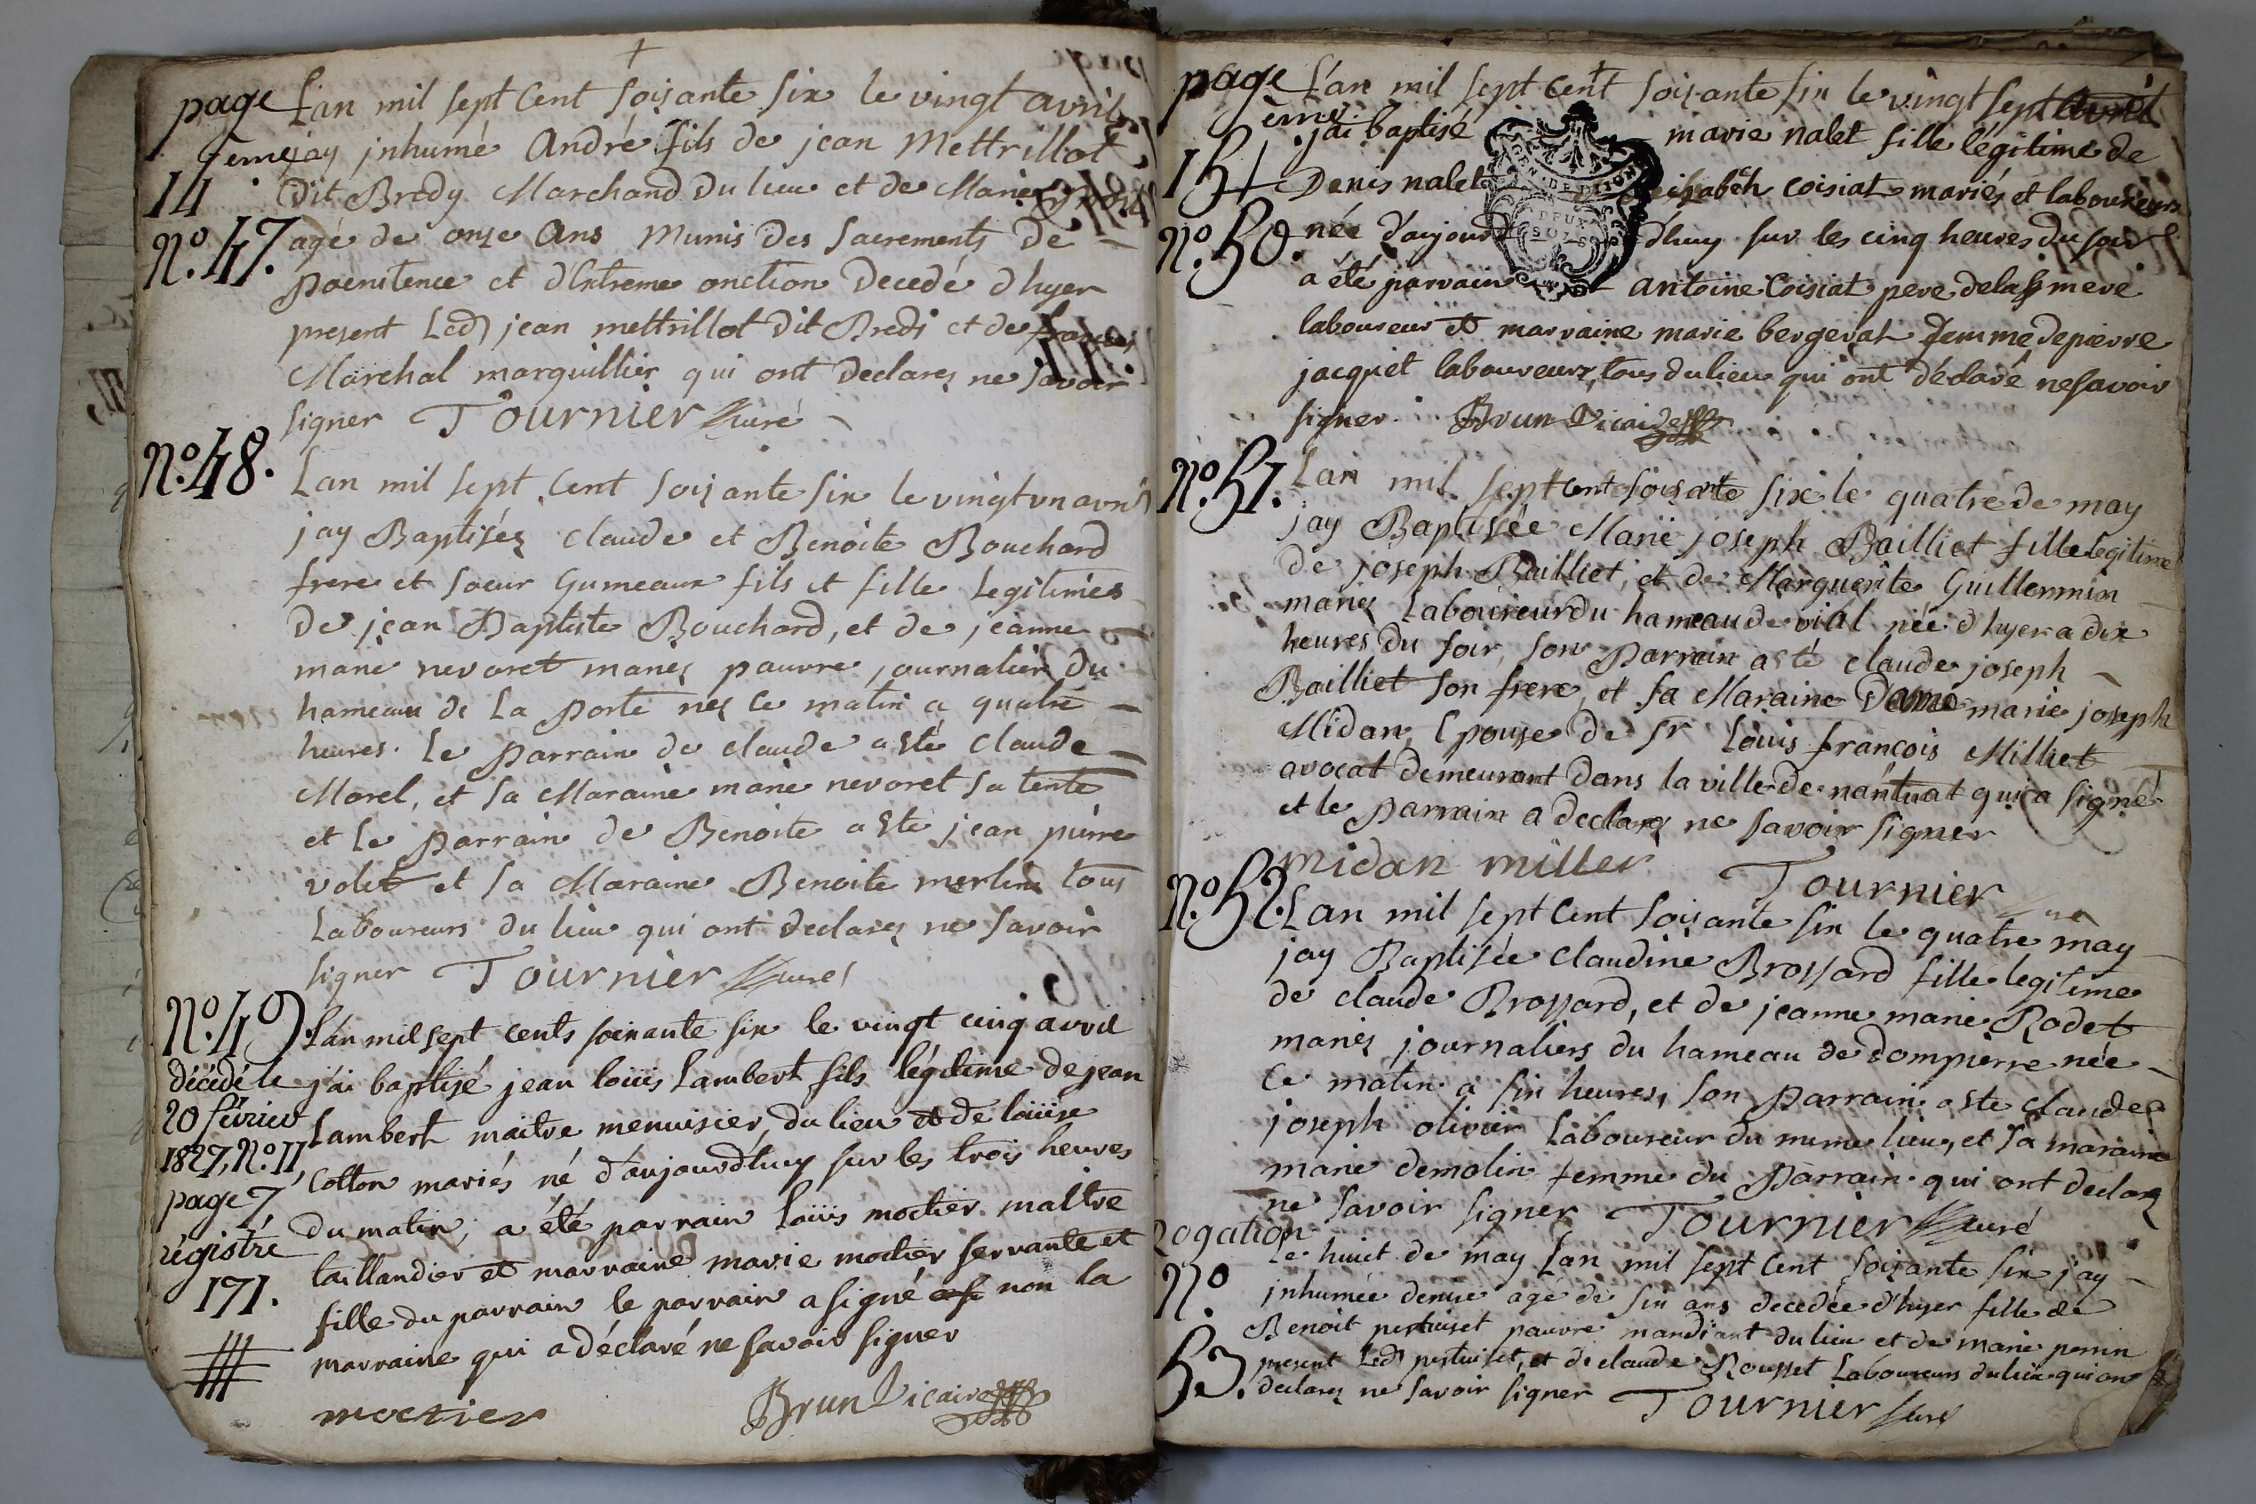 page
14
eme
N.º 47.
Lan mil sept Cent soisante six le vingt avril
jay jnhumé André fils de jean Mettrillot
dit Bredy Marchand du lieu et de Marie
agé de onze ans munis des sacrements de
poenitence et d'Extreme onction decedé d'hyer
present Led jean mettrillot dit Bredi et de
Marchal marguillier qui ont declarez ne savoir
signer Tournier curé
N.º 48.
Lan mil sept Cent soisante six le vingt un avril
jay Baptisez claude et Benoite Bouchard
frere et soeur Gumeaux fils et fille Legitimes
de jean Baptiste Bouchard, et de jeanne
marie nevoret mariez pauvre journalier du
hameau de La porte nez ce matin a quatre
heures. Le parrain de claude a sté claude
Morel, et sa Maraine marie nevoret sa tente
et le parrain de Benoite a sté jean pierre
volet et sa Maraine Benoite merlin tous
Laboureurs du lieu qui ont declarez ne savoir
signer Tournier curé
N.º 49.
décédé le
20 février
1827, N.º 11,
page 7,
régistre
171.
L'an mil sept cents soixante six le vingt cinq avril
j'ai baptisé jean loüis Lambert fils légitime de jean
Lambert maitre menuisier du lieu et de loüise
Cotton mariés né d'aujourd'huy sur les trois heures
du matin, a été parrain loüis moctier maitre
taillandier et marraine marie moctier servante et
fille du parrain le parrain a signé non la
marraine qui a déclaré ne savoir signer
moctier Brun Vicaire
page
15
ème
N.º 50.
L'an mil sept cent soixante six le vingt sept avril
j'ai baptisé marie nalet fille légitime de
Denis nalet Elizabeth coisiat mariés et laboureurs
GEN. DE DIJON
DEUX
SOLS
née d'aujourd'huy sur les cinq heures du soir
a été parrain antoine Coisiat pere de la mere
laboureur et marraine marie bergerat femme de pierre
jacquet laboureurs, tous du lieu qui ont déclaré ne savoir
signer. Brun Vicaire
N.º 51.
Lan mil sept cent soisante six le quatre de may
jay Baptisée Marie joseph Bailliet fille legitime
de joseph Bailliet, et de Marguerite Guillermin
mariez Laboureur du hameau de vial née d'hyer a dix
heures du soir, son Parrain a sté claude joseph
Bailliet son frere, et sa Maraine Dame marie joseph
Midan, Epouse de Sr Louis françois Milliet
avocat demeurant dans la ville de nantuat qui a signé
et le parrain a declarez ne savoir signer
midan millet Tournier curé
N.º 52.
Lan mil sept Cent soisante six le quatre may
jay Baptisée claudine Brossard fille legitime
de claude Brossard, et de jeanne marie Rodet
mariez journaliers du hameau de dompierre née
ce matin a six heures, son parrain a sté claude
joseph olivier Laboureur du meme lieu, et sa maraine
marie demolin femme du parrain qui ont declarez
ne savoir signer Tournier curé
rogation
N.º
53.
Le huict de may Lan mil sept Cent soisante six jay
jnhumée denise agé de six ans decedée d'hyer fille de
Benoit pertuiset pauvre mandiant du lieu et de marie perrin
present Led pertuiset, et de claude Rousset Laboureurs du lieu qui ont
declarez ne savoir signer Tournier curé